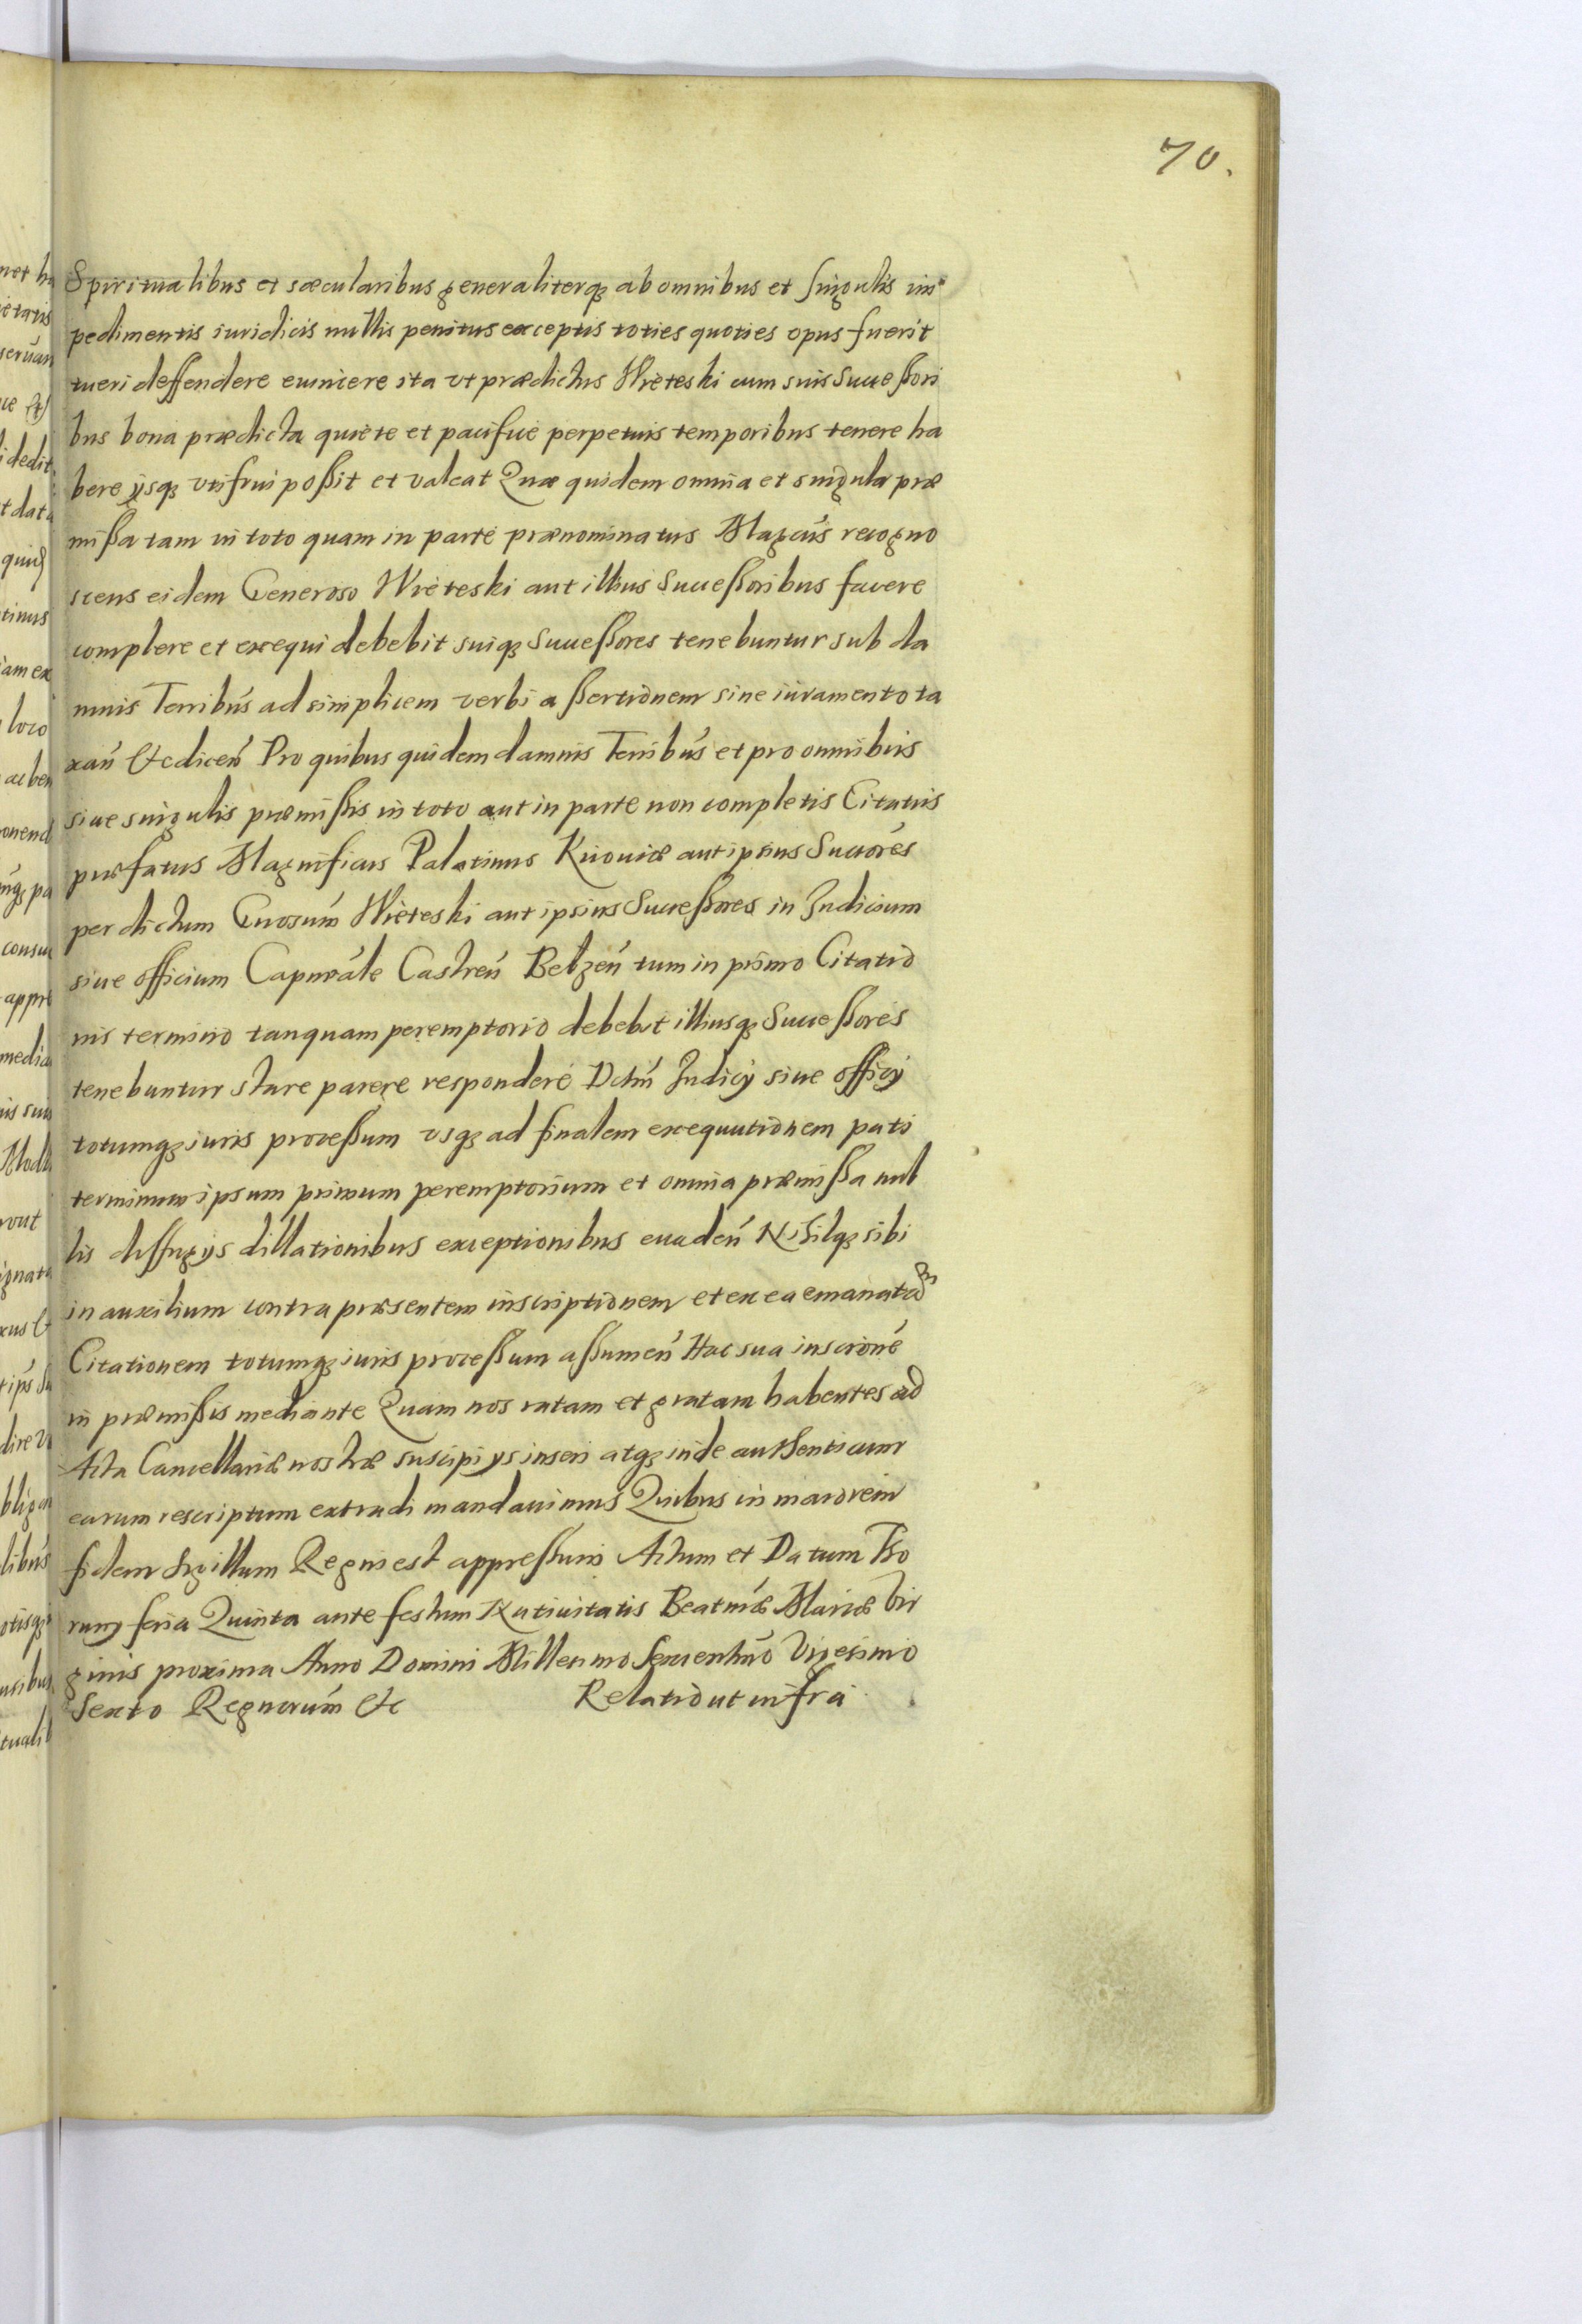 70.
Spiritualibus et sæcularibus generaliterq3 ab omnibus et singulis im
pedimentis iuridicis nullis penitus exceptis toties quoties opus fuerit
tueri deffendere euincere ita vt prædictus Wieteski cum suis Successori
bus bona prædicta quiete et pacifice perpetuis temporibus tenere ha
bere ijsq3 vtifrui possit et valeat Quæ quidem omnia et singula præ
missa tam in toto quam in parte prænominatus Magcus recogno
scens eidem Generoso Wieteski aut illius Successoribus facere
complere et exequi debebit suiq3 Successores tenebuntur sub da
mnis Terribus ad simplicem verbi assertionem sine iuramento ta
xan̄ & edicen̄ Pro quibus quidem damnis Terribus et pro omnibus
siue singulis præmissis in toto aut in parte non completis Citatus
præfatus Magnificus Palatinus Kiiouiæ aut ipsius Succores
per dictum Gnosum Wieteski aut ipsius Successores in Iudicium
siue officium Capneale Castren̄ Belzen̄ tum in primo Citatio
nis termino tanquam peremptorio debebit illiusq3 Successores
tenebuntur stare parere respondere Dctm̄ Iudicij siue officij
totumq3 iuris processum vsq3 ad finalem exequutionem pati
terminum ipsum primum peremptorium et omnia præmissa nul
lis diffugijs dillationibus exceptionibus euaden̄ Nihilq3 sibi
in auxilium contra præsentem inscriptionem et ex ea emanatam
Citationem totumq3 iuris processum assumen̄ Hac sua inscrione
in præmissis mediante Quam nos ratam et gratam habentes ad
Acta Cancellariæ nostræ suscipi ijs inseri atq3 inde authenticum
earum rescriptum extradi mandauimus Quibus in maiorem
fidem sigillum Regni est appressum Actum et Datum Tho
runij feria Quinta ante festum Natiuitatis Beatmæ Mariæ Vir
ginis proxima Anno Domini Millesimo Sexcentmo Vigesimo
Sexto Regnorum &c Relatio ut infra